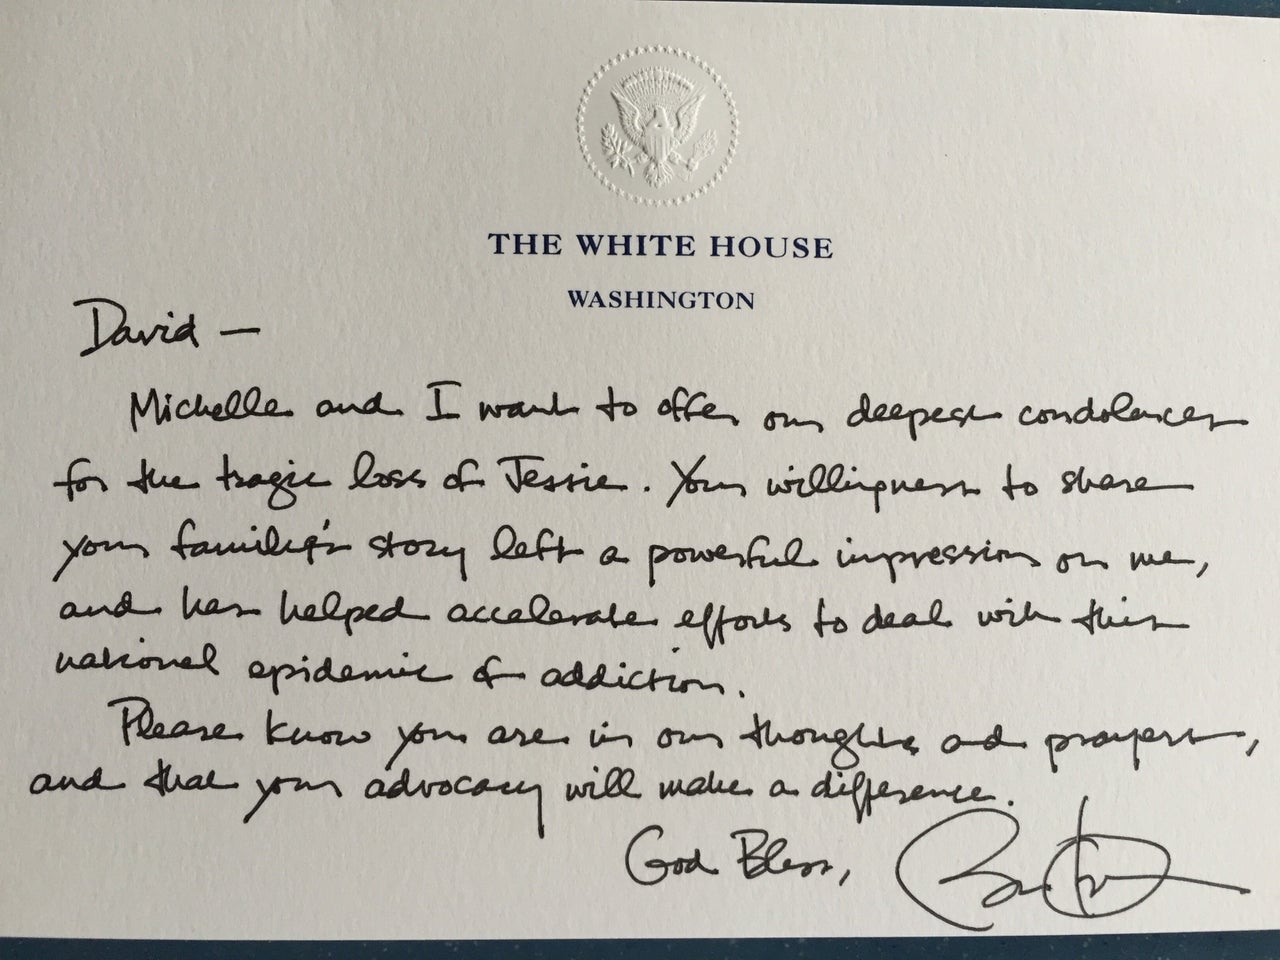 THE WHITE HOUSE
WASHINGTON
David —
Michelle and I want to offer our deepest condolences
for the tragic loss of Jessie. Your willingness to share
your family's story left a powerful impression on me,
and has helped accelerate efforts to deal with this
national epidemic of addiction.
Please know you are in our thoughts and prayers,
and that your advocacy will make a difference.
God Bless,